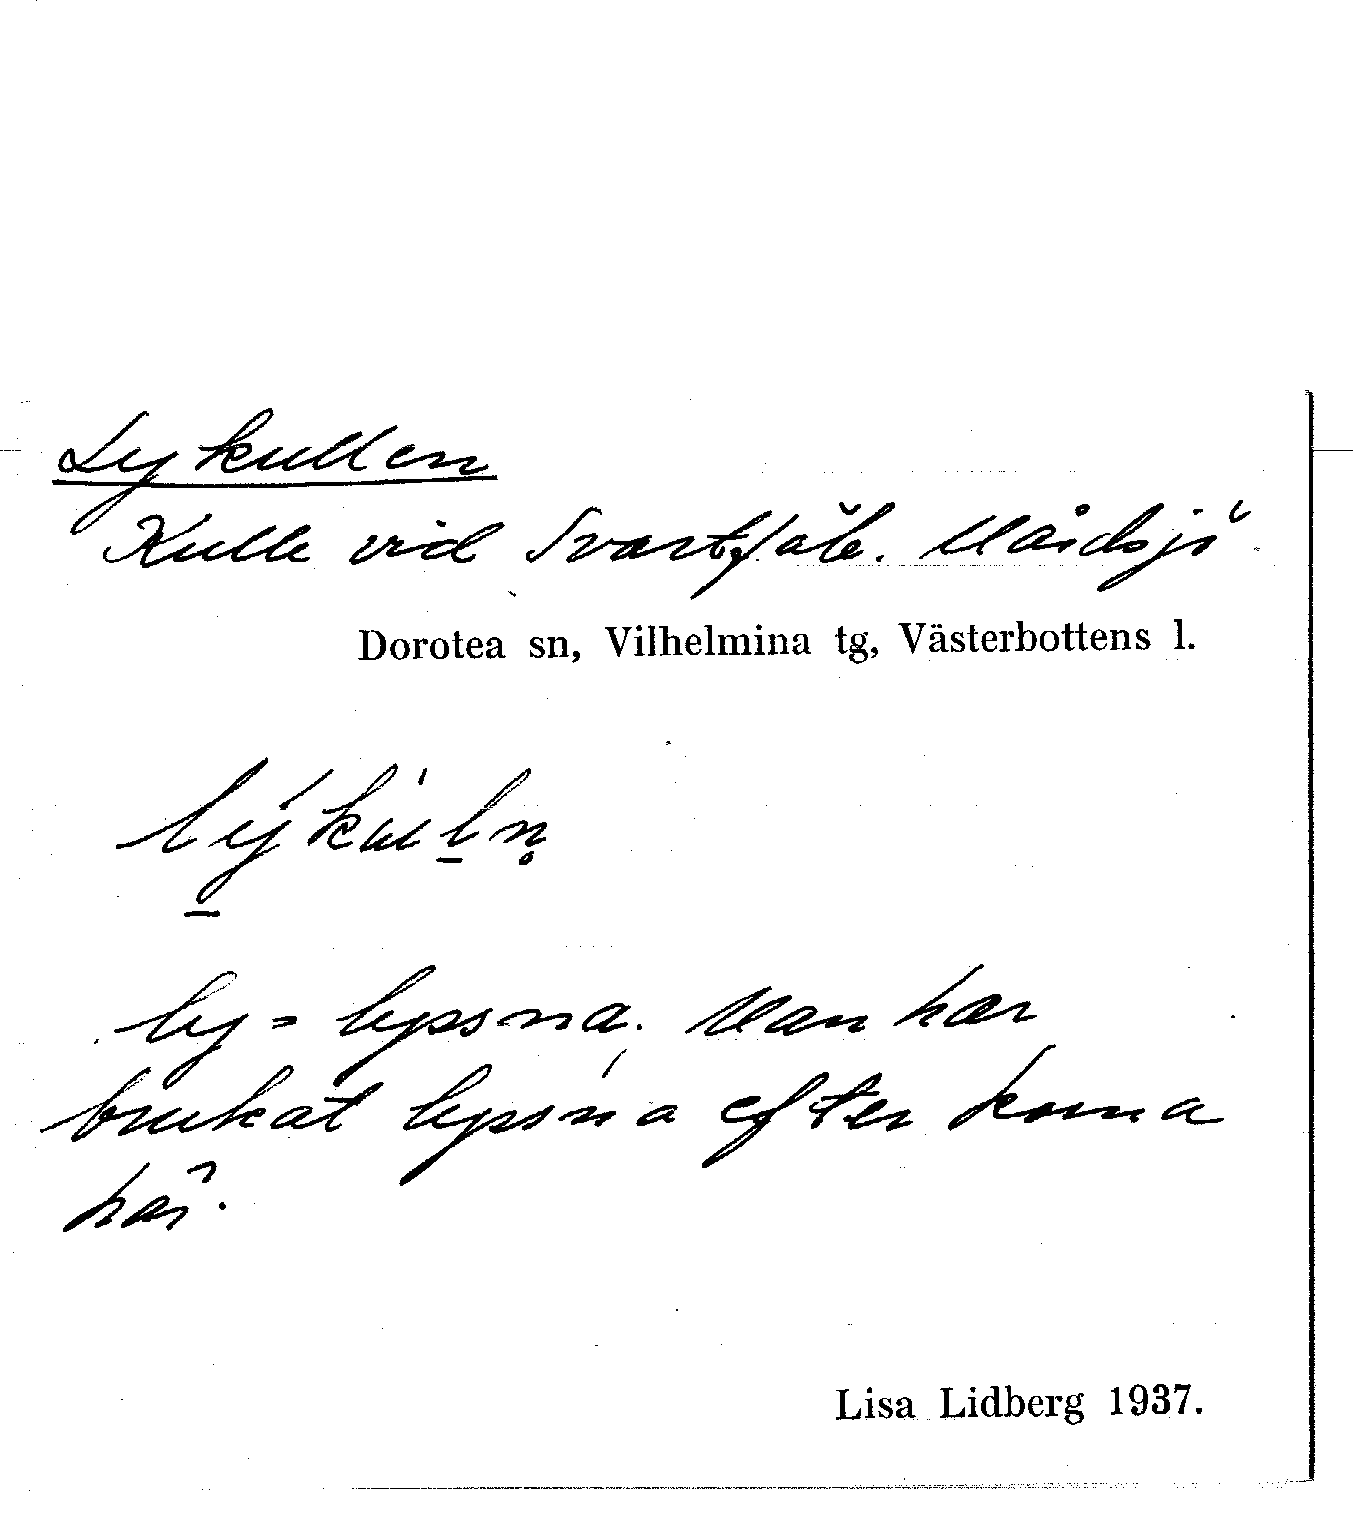 Lykullen
Kulle vid Svarttjäle. Måidsjö
Dorotea sn, Vilhelmina tg, Västerbottens l.
lýkùl̲n̥
ly = lyssna. Man har
brukat lyssna efter korna
här.
Lisa Lidberg 1937.